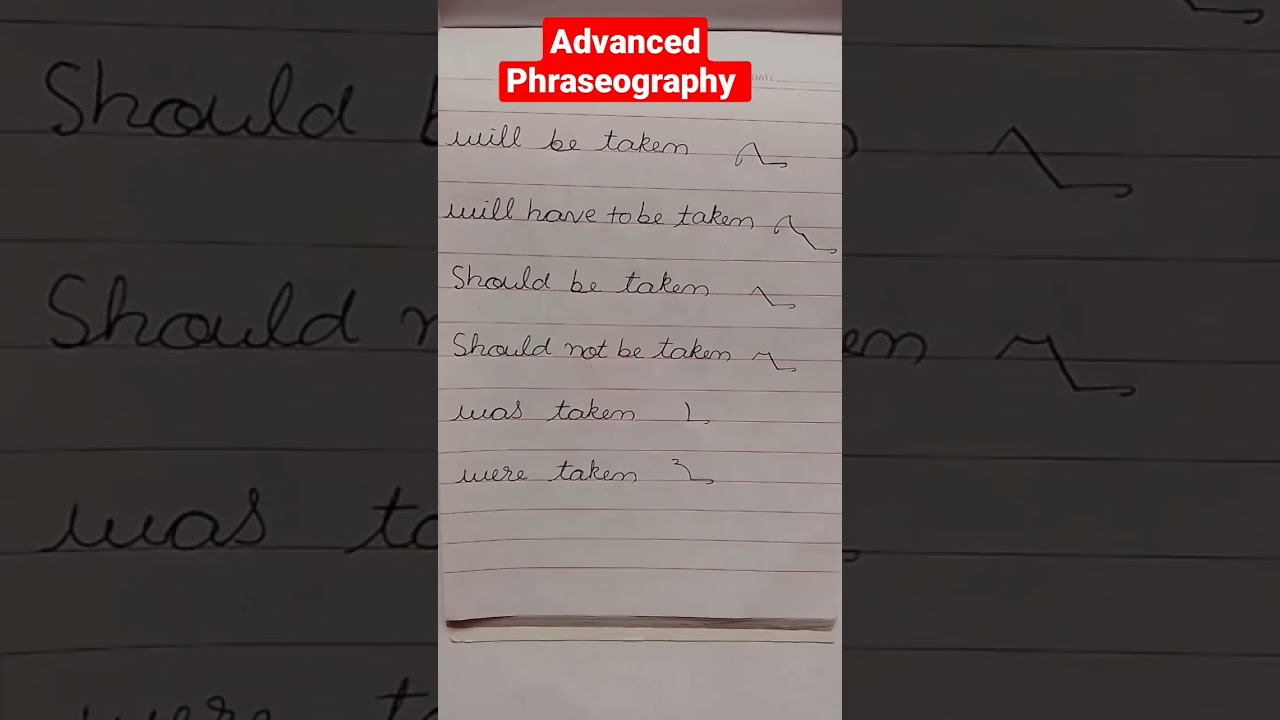 Advanced
Phraseography
DATE
will be taken
will have to be taken
Should be taken
Should not be taken
was taken
were taken